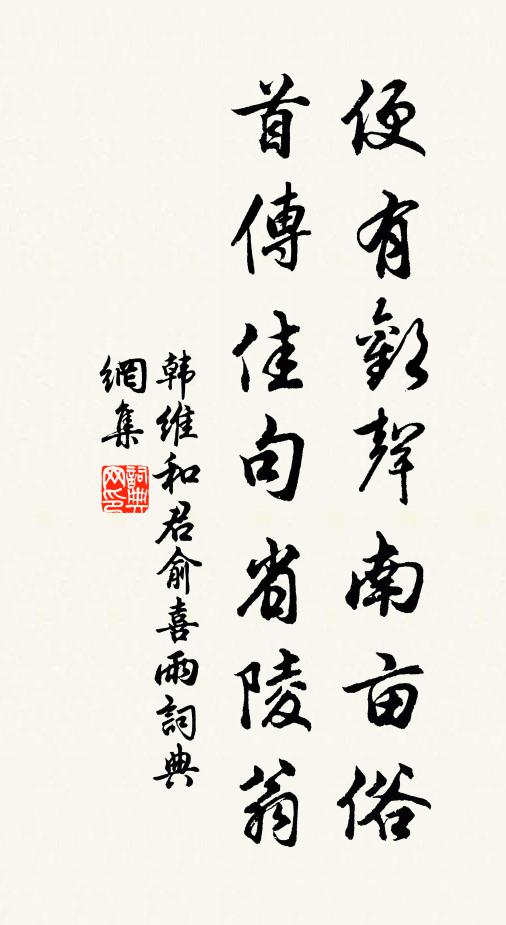 便有歡聲南亩俗
首傳佳句省陵翁
韩維和君俞喜雨詞典
網集
詞典网印